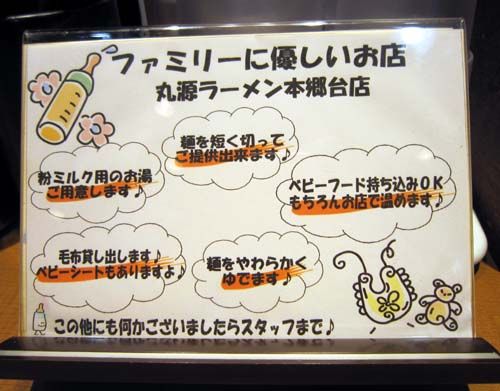 ファミリーに優しいお店
丸源ラーメン本郷台店
麺を短く切って
ご提供出来ます♪
粉ミルク用のお湯
ご用意します♪
ベビーフード持ち込みOK
もちろんお店で温めます♪
毛布貸し出します♪
ベビーシートもありますよ♪
麺をやわらかく
ゆでます♪
この他にも何かございましたらスタッフまで♪